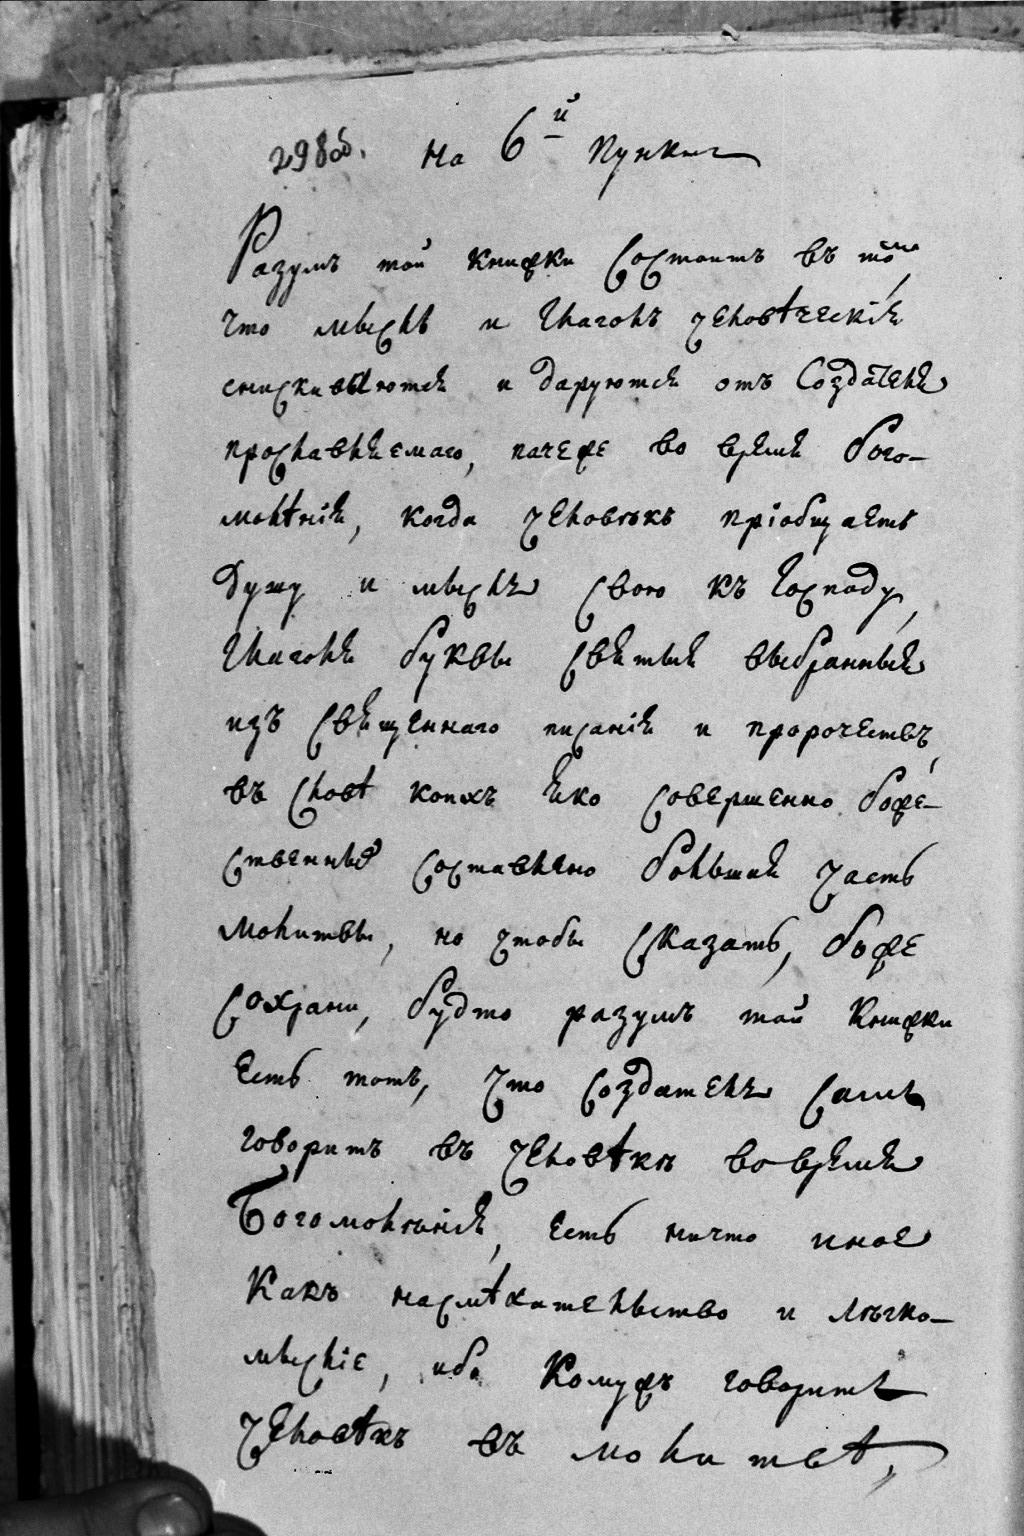 298об. На 6й пунктъ
Разумъ той книжки состоитъ въ томъ,
что мысль и глаголъ человѣческія
снискиваются и даруются отъ Создателя
прославляемаго, пачеже во время бого-
молѣнія, когда человѣкъ пріобщаетъ
душу и мысль свою къ Господу,
глаголя буквы святыя выбранныя
изъ священнаго писанія и пророчествъ,
въ словѣ коихъ яко совершенно боже-
ственные составлено большая часть
молитвы, но чтобы сказать, боже
сохрани, будто разумъ той книжки
есть тотъ, что создатель самъ
говоритъ въ человѣкѣ во время
Богомолѣнія, есть ничто иное
какъ насмѣхательство и лѣгко-
мысліе, ибо комужъ говоритъ
человѣкъ въ молитвѣ,